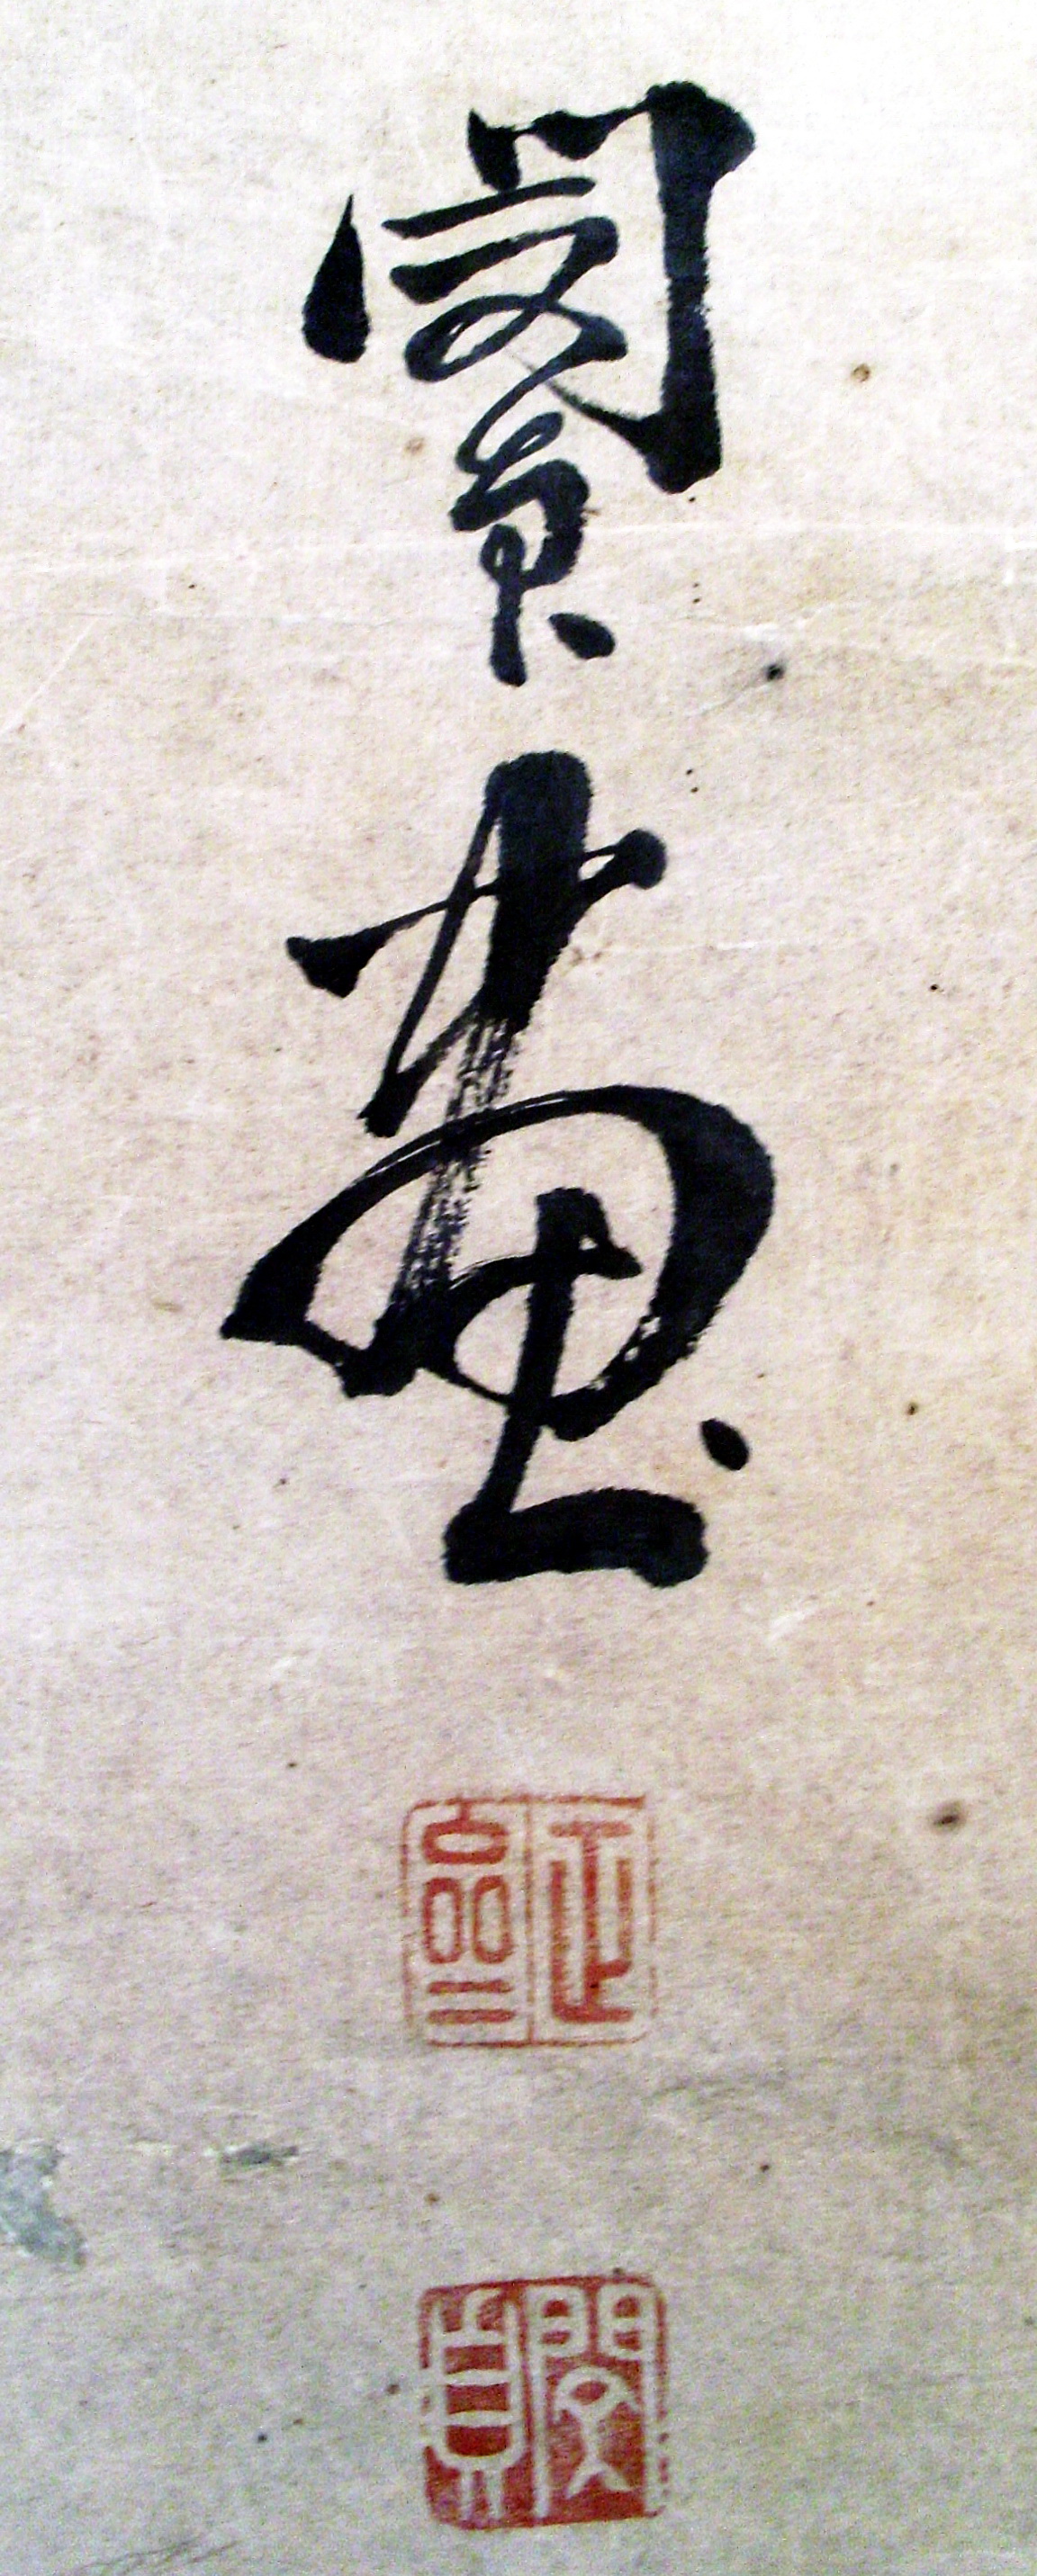 閔貞畫
正齋
閔貞